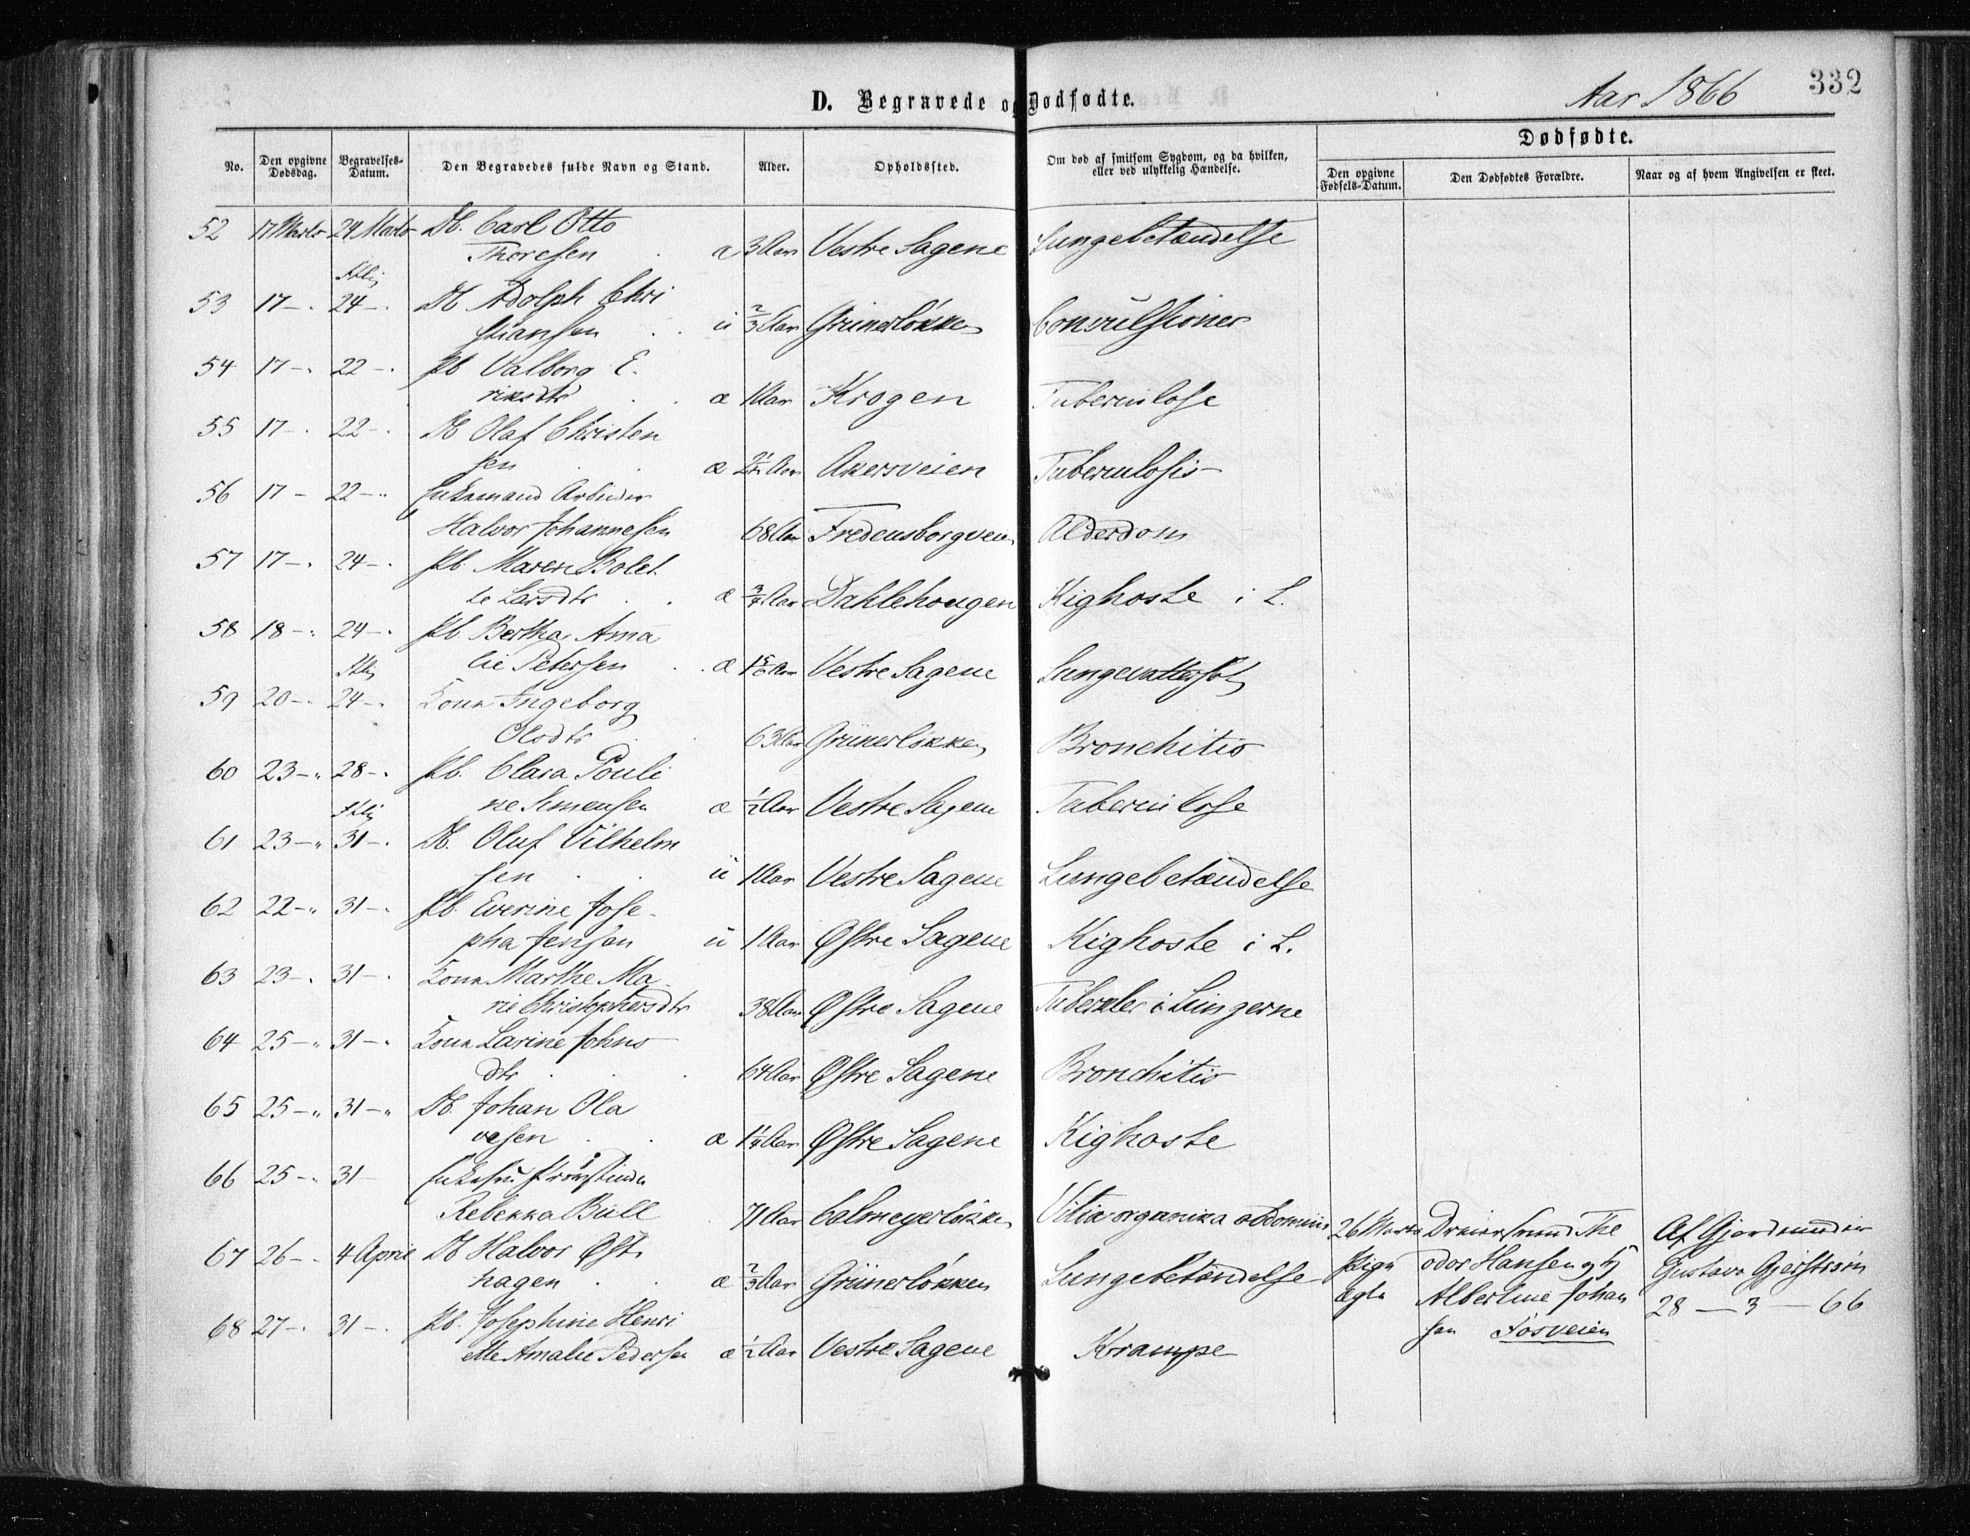 D. Begravede og Dødfødte.
Aar 1866
332
No.
Den opgivne Dødsdag.
Begravelses-Datum.
Den Begravedes fulde Navn og Stand.
Alder.
Opholdssted.
Om død af smitsom Sygdom, og da hvilken, eller ved ulykkelig Hændelse.
Dødfødte.
Den opgivne Fødsels-Datum.
Den Dødfødtes Forældre.
Naar og af hvem Angivelsen er skeet.
52 17 Marts 24 Marts Db. Carl Otto
Thoresen æ 3 Aar Vestre Sagene Lungebetændelse
53 17 24 Db Adolph Chri
stiansen u 2/3 Aar Grünerløkken Convulsioner
54 17 22 Pb Valborg E.
riksdtr æ 1 Aar Krogen Tuberculose
55 17 22 Db Olaf Christen
sen æ Aar Akersveien Tuberculosis
56 17 22 Enkemand Arbeider
Halvor Johannesen 68 Aar Fredensborgveien Alderdom
57 17 24 Pb Maren Bolet
te Larsdtr æ 3/4 Aar Dahlehougen Kighoste i L.
58 18 24 Pb Bertha Ama
lie Petersen æ 1 5/6 Aar Vestre Sagene Lungevattersot
59 20 24 Kona Ingeborg
Olsdtr 63 Aar Grünerløkken Bronchitis
60 23 28 Pb. Clara Pouli
ne Simensen æ 1/2 Aar Vestre Sagene Tuberculose
61 23 31 Db. Oluf Vilhelm
sen u 1 Aar Vestre Sagene Lungebetændelse
62 22 31 Pb. Everine Jose
pha Jensen u 1 Aar Østre Sagene Kighoste i L.
63 23 31 Kona Marthe Ma
rie Christophersdtr 38 Aar Østre Sagene Tuberkler i Lungerne
64 25 31 Kona Larine Johns
dtr 64 Aar Østre Sagene Bronchitis
65 25 31 Db Johan Ola
vesen æ 1 1/4 Aar Østre Sagene Kighoste
66 25 31 Enkefru
Rebekka Bull 71 Aar Calmeyerløkken Vitia organica abdominis
67 26 4 April Db Halvor Øst
hagen æ 2/3 Aar Grünerløkken Lungebetændelse
68 27 31 Pb. Josephine Henri
ette Amalie Pedersen æ 1/2 Aar Vestre Sagene Krampe
26 Marts
Pige
ægte
Dreiersvend The
odor Hansen og
Alberline Johan
sen Fosveien
Af Gjordemoder
Gustava
28 – 3 – 66